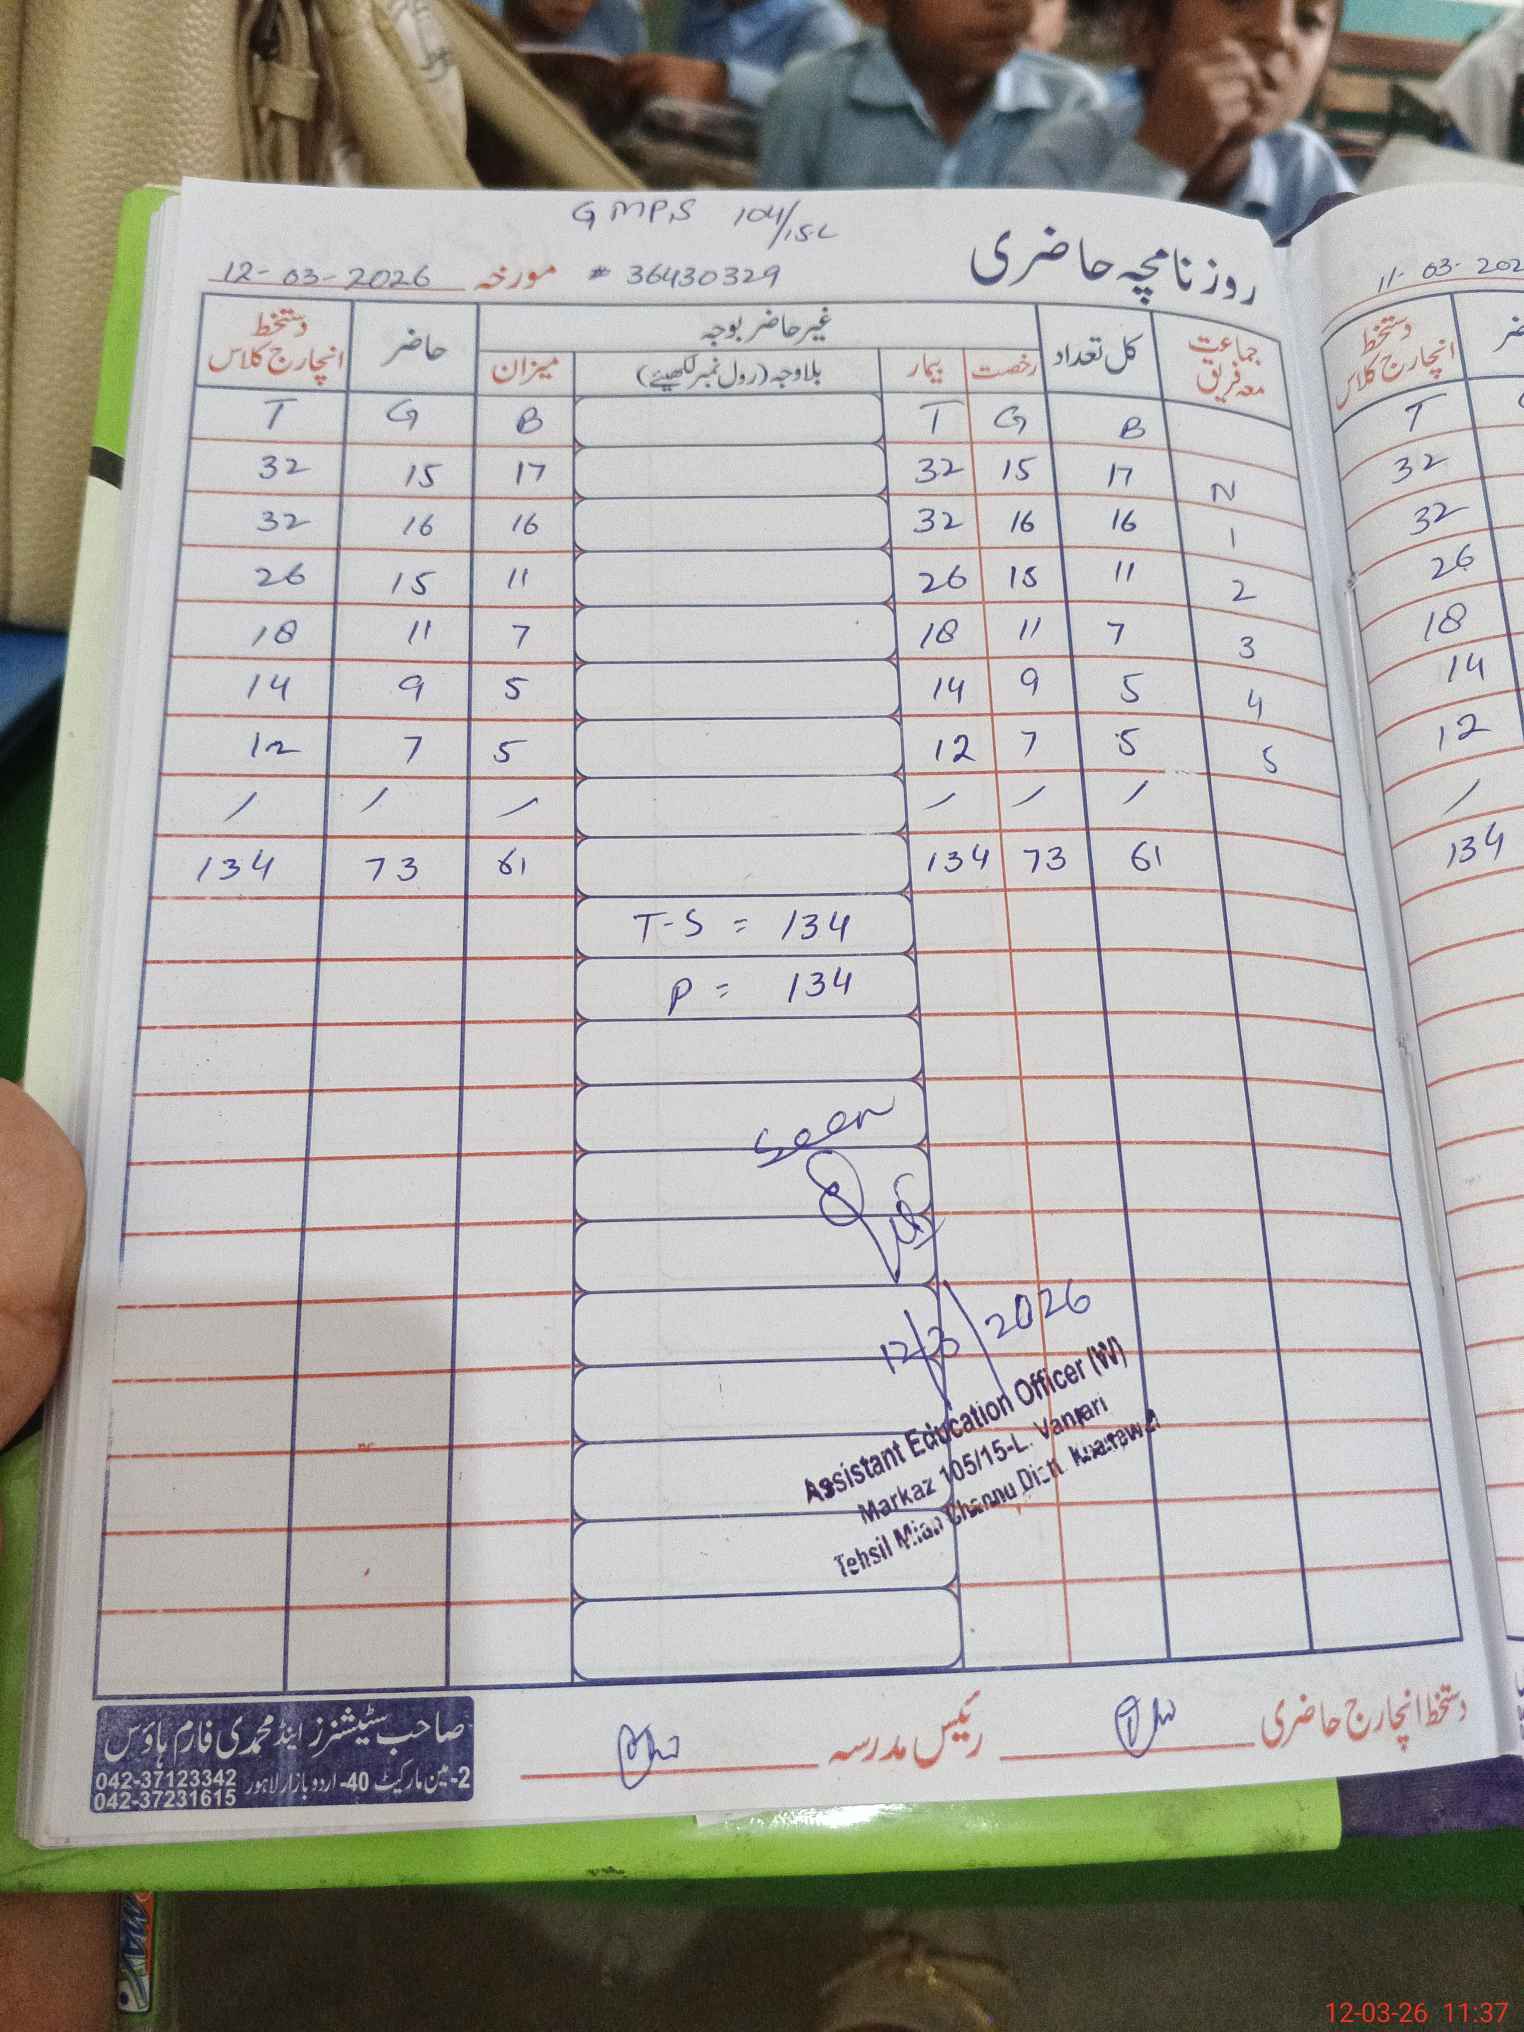 GMPS 104/15L
روزنامچہ حاضری
# 36430329
مورخہ 12-03-2026
جماعت معہ فریق کل تعداد غیر حاضر بوجہ حاضر دستخط انچارج کلاس
رخصت بیمار بلاوجہ (رول نمبر لکھیئے) میزان
T G B T G B
32 15 17 32 15 17 N
32 16 16 32 16 16 1
26 15 11 26 15 11 2
18 11 7 18 11 7 3
14 9 5 14 9 5 4
12 7 5 12 7 5 5
/ / / / / /
134 73 61 134 73 61
T-S = 134
P = 134
Seen
12/3/2026
Assistant Education Officer (W)
Markaz 105/15-L. Vanjari
Tehsil Mian Channu Distt Khanewal
دستخط انچارج حاضری
رئیس مدرسہ
صاحب سٹیشنرز اینڈ محمدی فارم ہاؤس
2-مین مارکیٹ 40-اردو بازار لاہور
042-37123342
042-37231615
11-03-202
دستخط انچارج کلاس
T
32
32
26
18
14
12
/
134
12-03-26 11:37